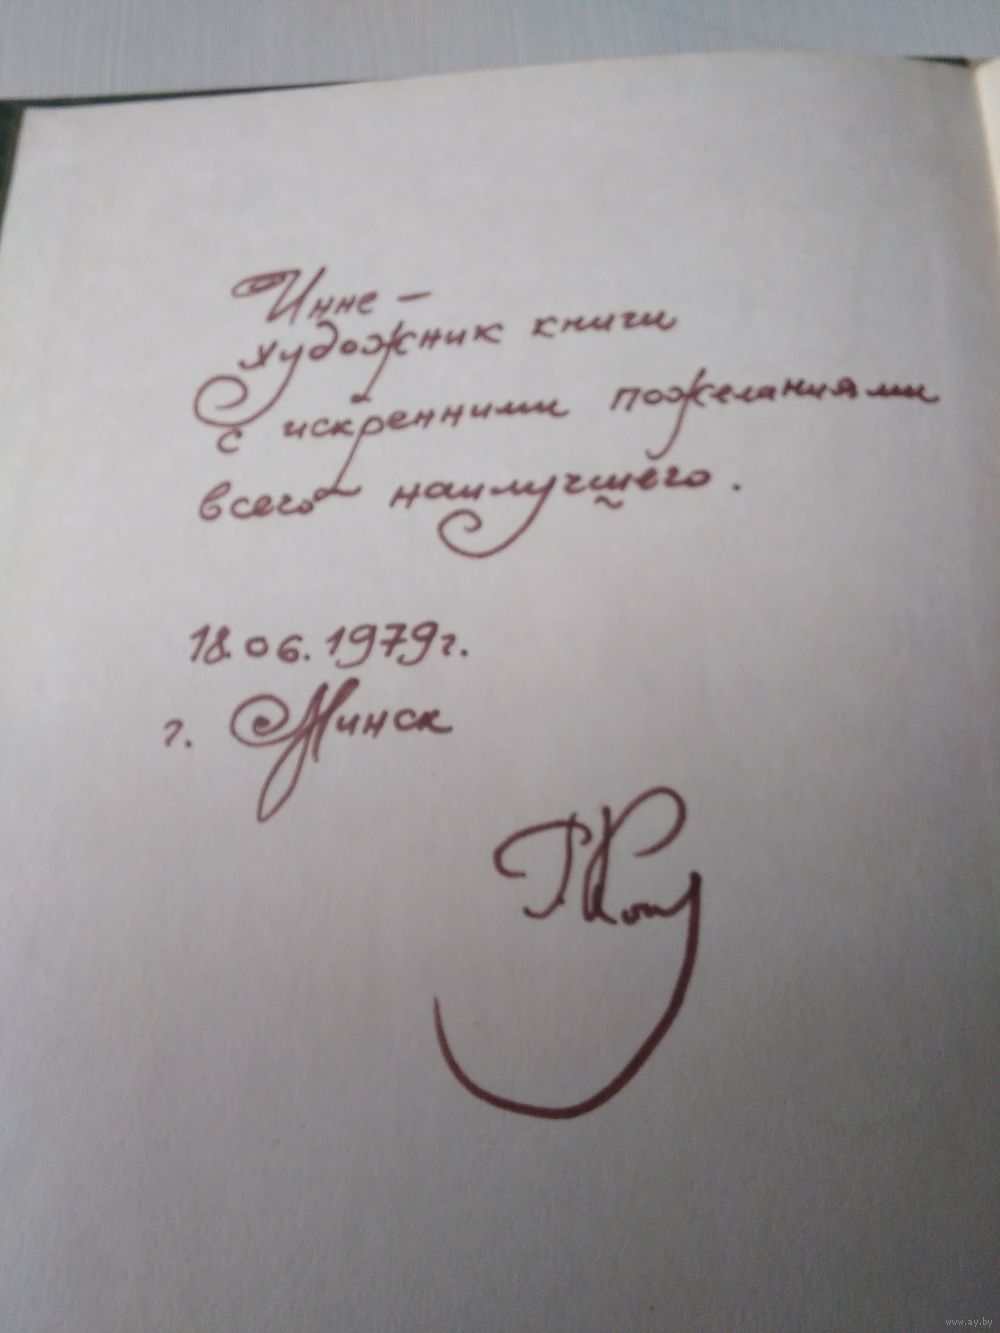 Инне –
художник книги
с искренними пожеланиями
всего наилучшего.
18.06.1979г.
г. Минск
www.ay.by